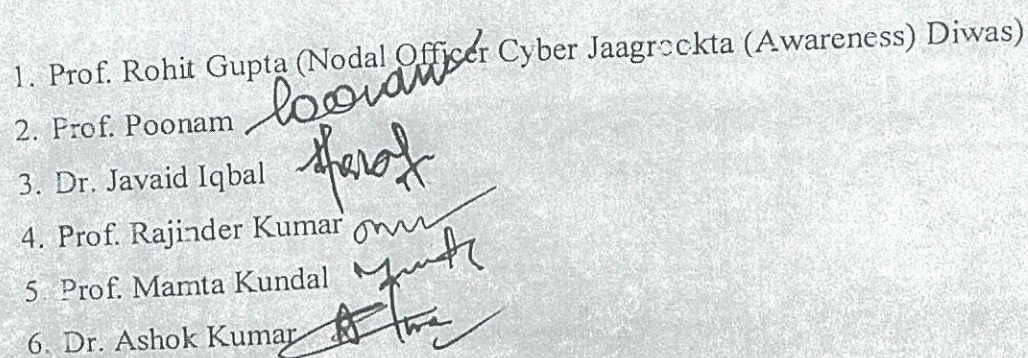 1. Prof. Rohit Gupta (Nodal Officer Cyber Jaagrookta (Awareness) Diwas)
2. Prof. Poonam Poonam
3. Dr. Javaid Iqbal
4. Prof. Rajinder Kumar
5. Prof. Mamta Kundal
6. Dr. Ashok Kumar